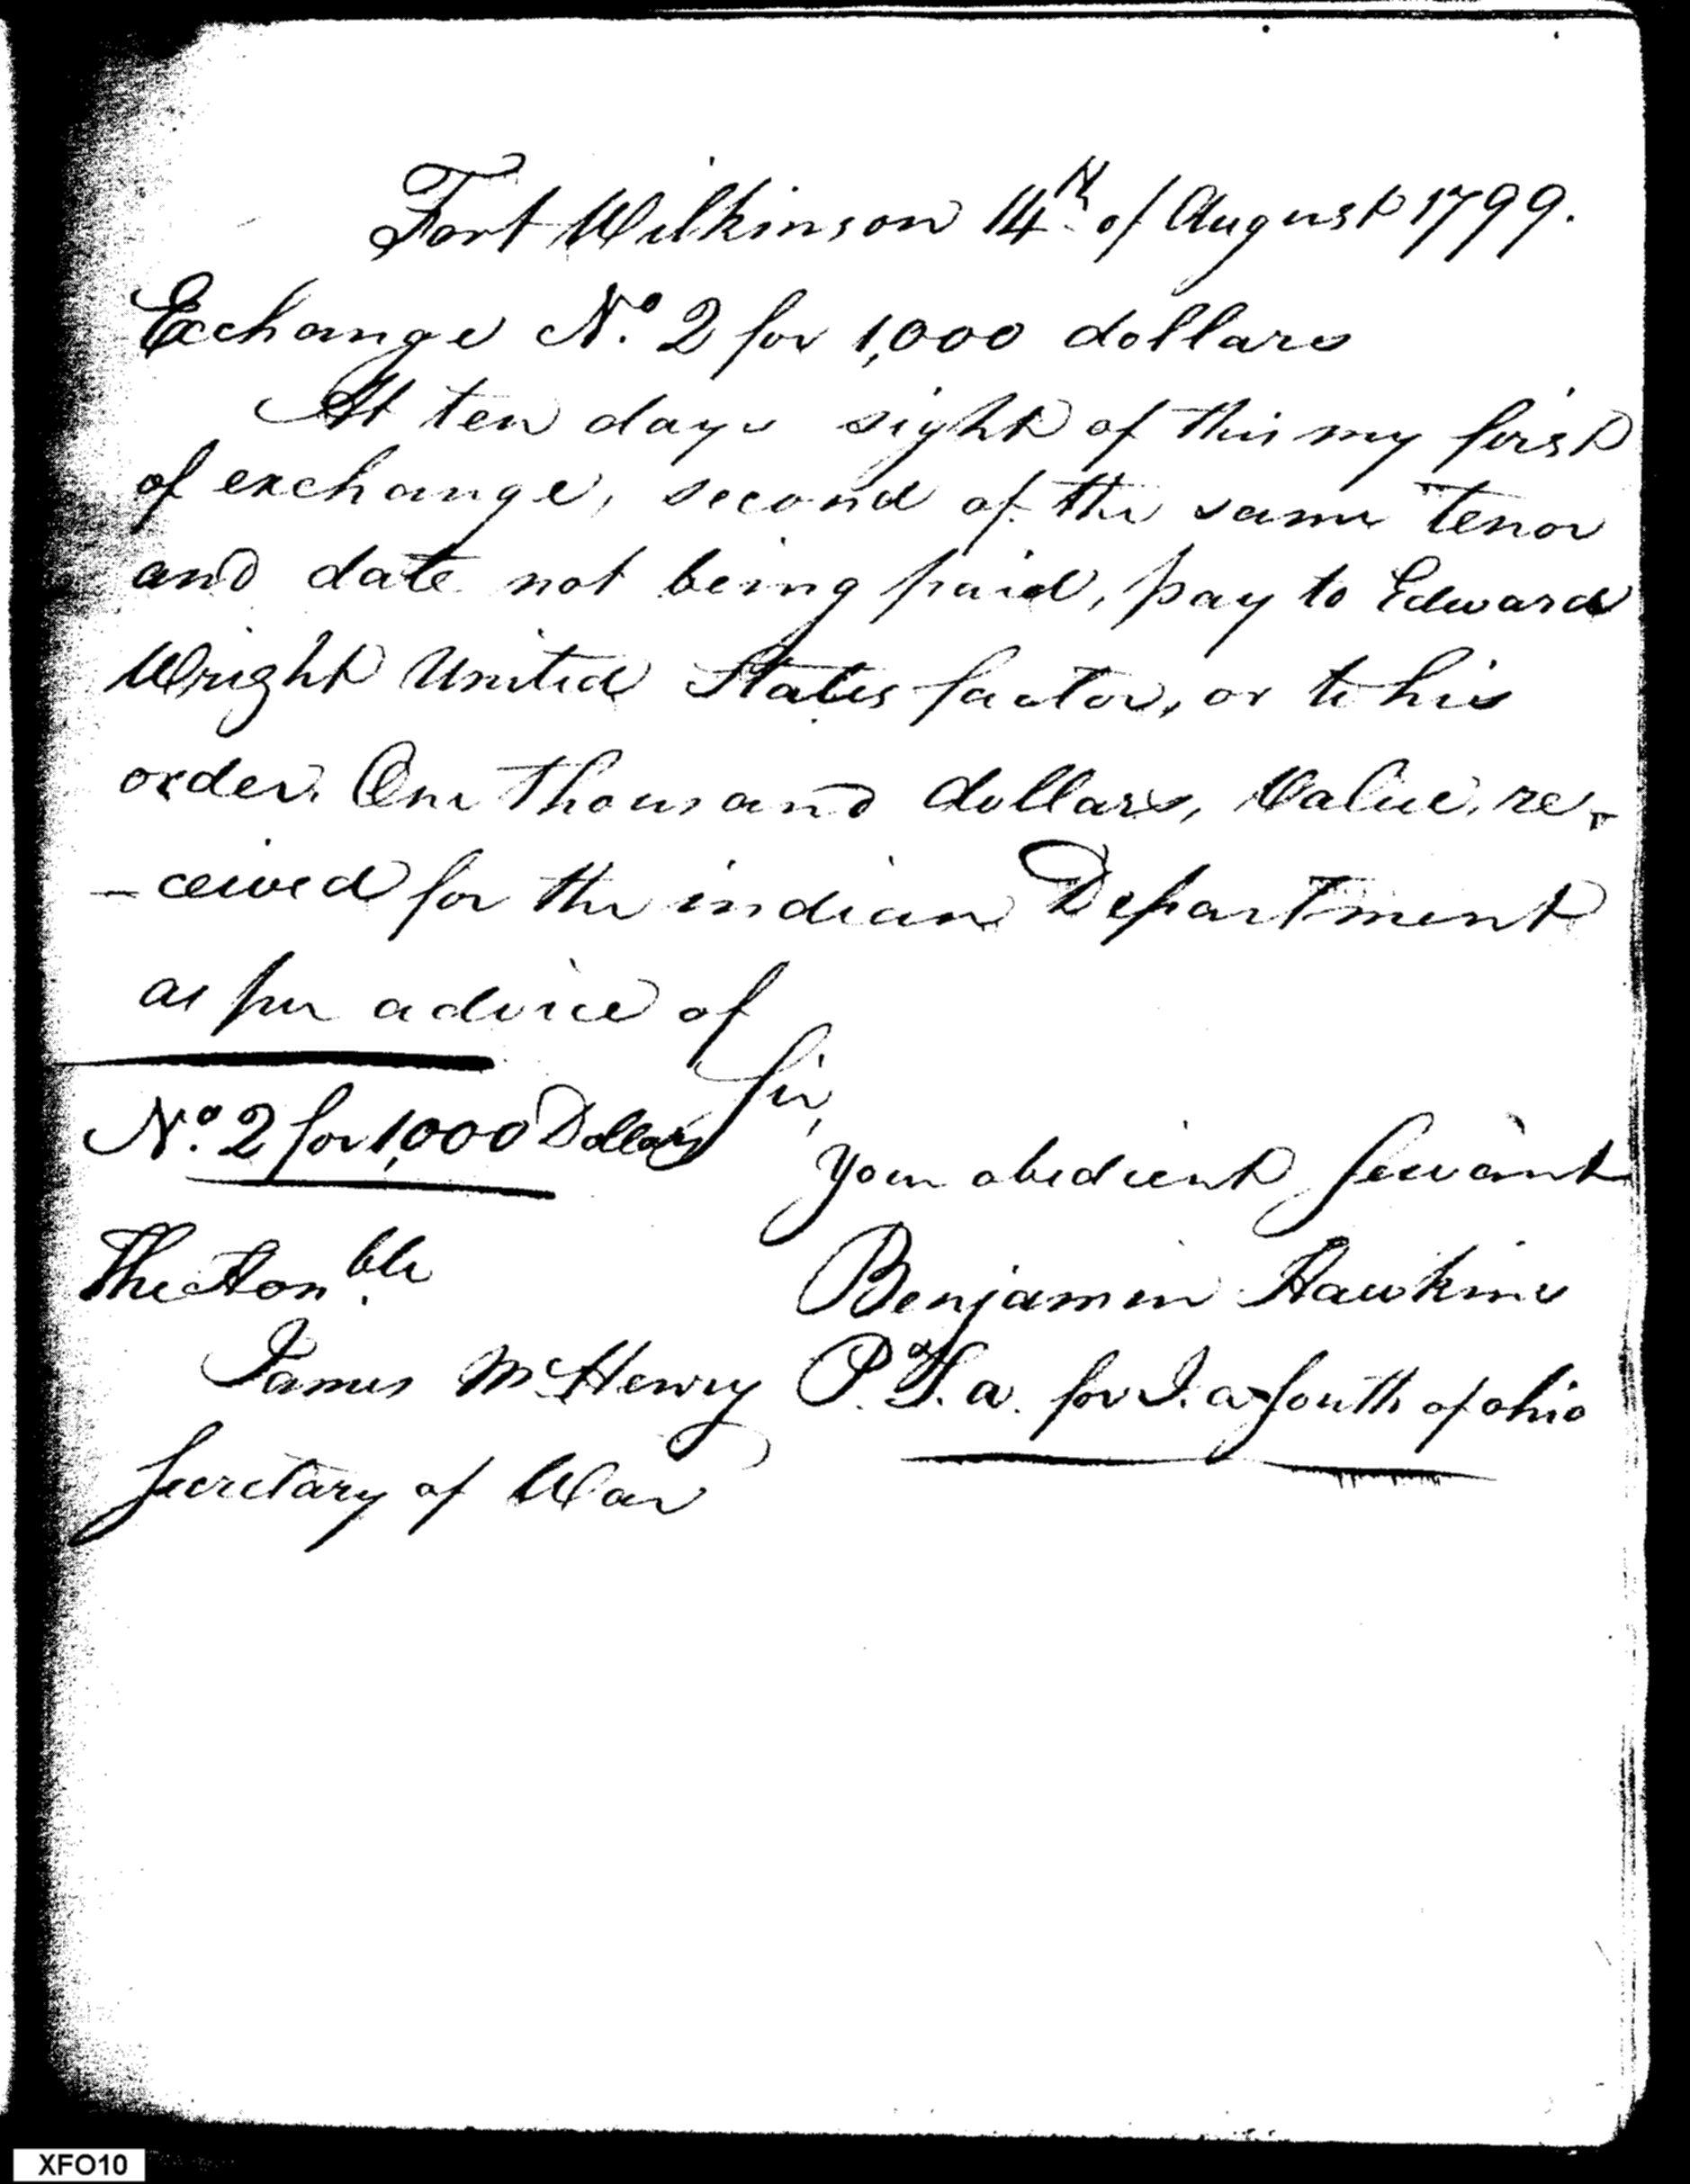 Fort Wilkinson 14th of August 1799.
Exchange No. 2 for 1,000 dollars
At ten days sight of this my first
of exchange, second of the same tenor
and date not being paid, pay to Edward
Wright United States factor, or to his
order. One Thousand dollars, Value, re-
-ceived for the indian Department
as per advice of
Sir,
No. 2 for 1,000 Dollars
Your obedient Servant
The Honble.
Benjamin Hawkins
James McHenry
P. T. a. for I. a South of ohio
Secretary of War
XFO10